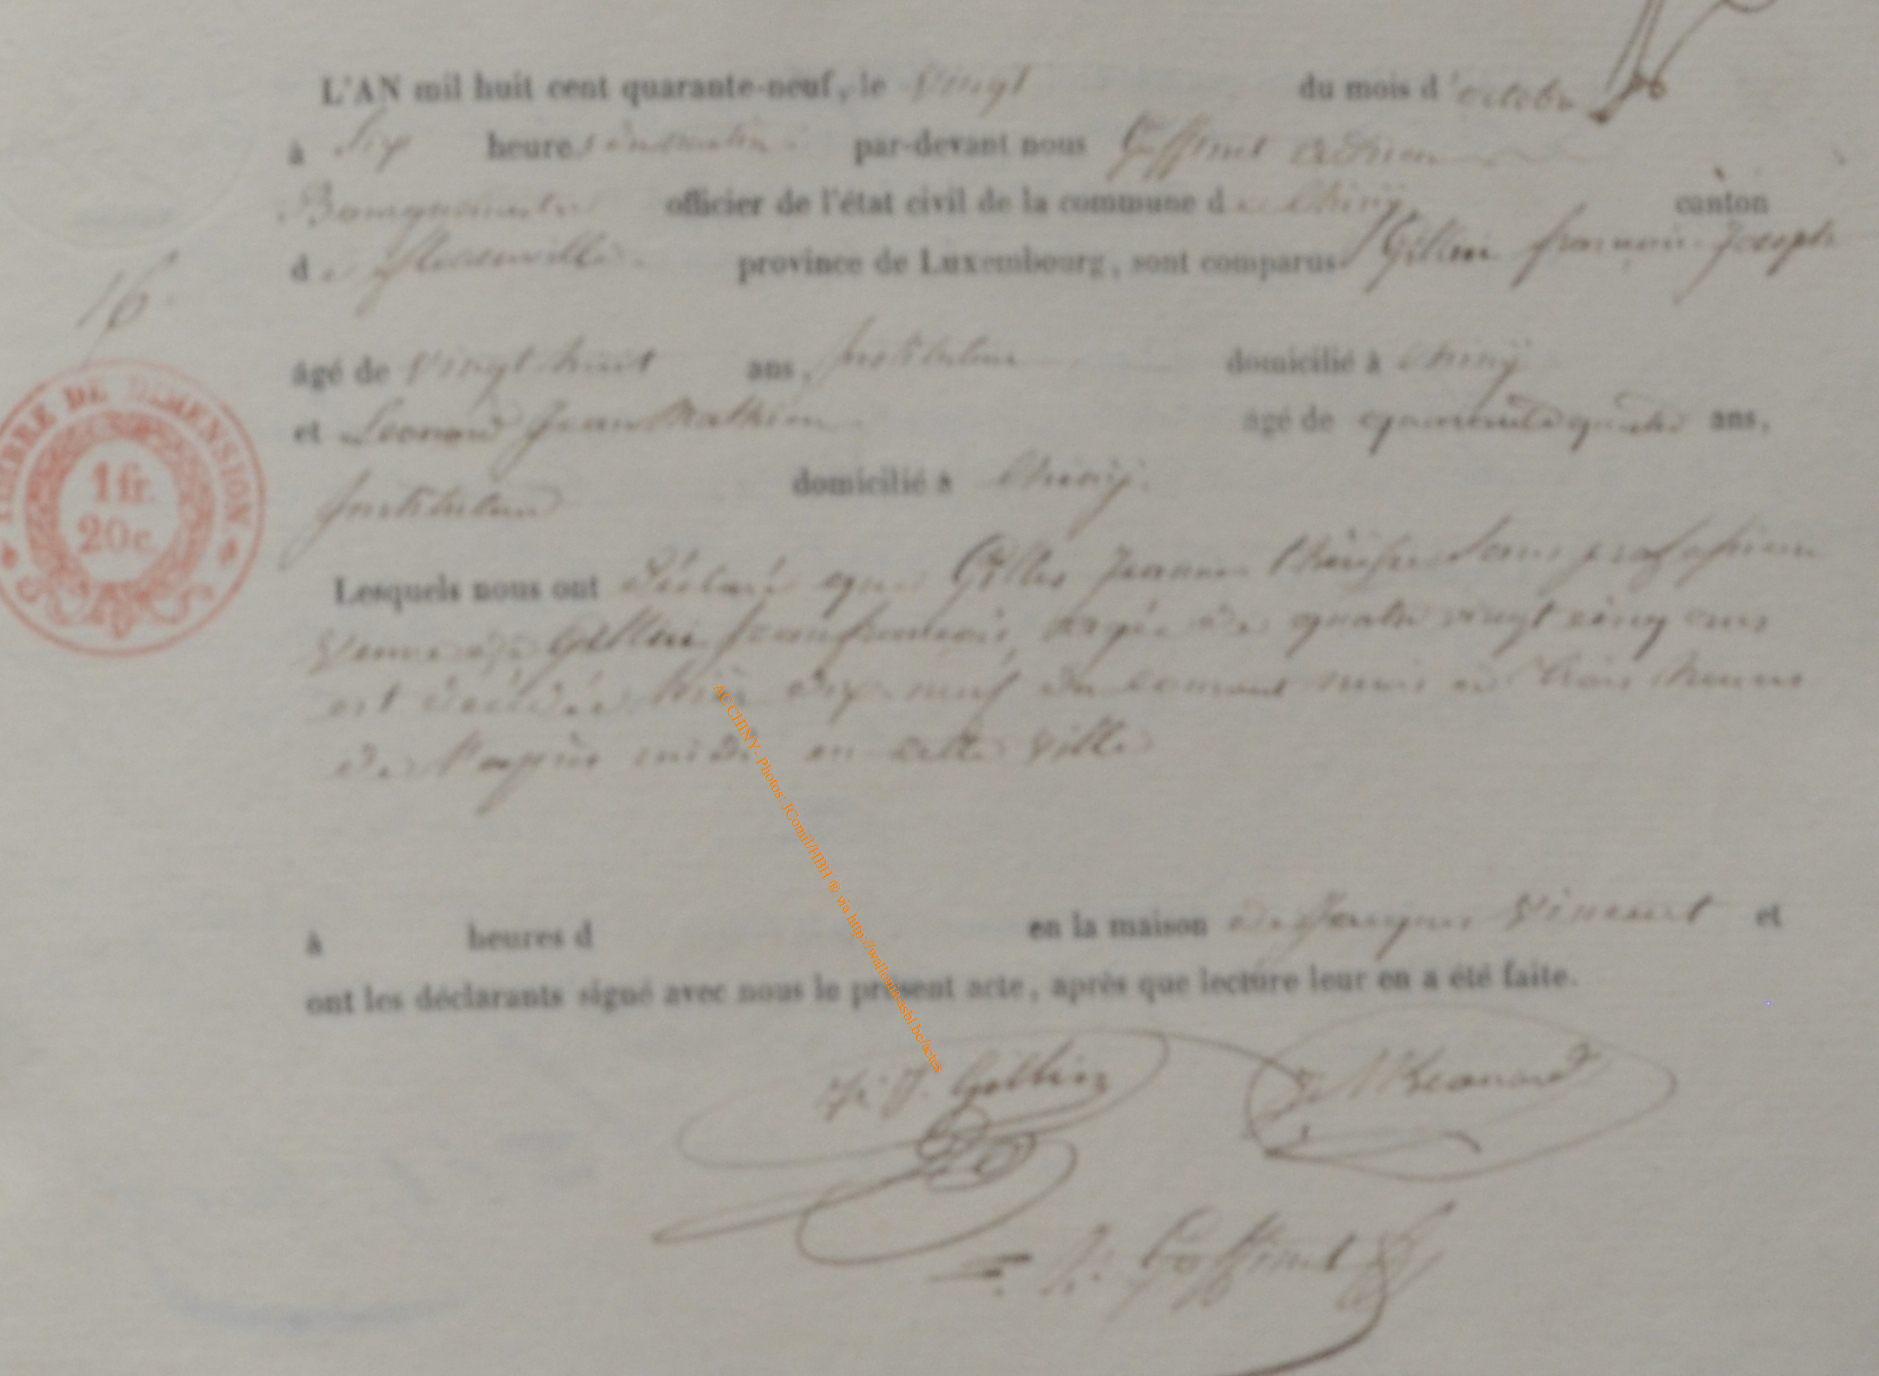 L'AN mil huit cent quarante-neuf, le vingt du mois d'octobre
à six heures du matin par-devant nous Goffinet Adrien
Bourguemestre officier de l'état civil de la commune de Chiny canton
de Florenville province de Luxembourg, sont comparus Gillin françois Joseph
16
âgé de vingt huit ans, Instituteur domicilié à Chiny
et Leonard Jean Mathieu âgé de quarante quatre ans,
Instituteur domicilié à Chiny.
Lesquels nous ont déclaré que Gilles Jeanne Thérèse Sans profession
veuve de Gillin Jean françois, agée de quatre vingt cinq ans
est décédée hier dix neuf du courant mois à trois heures
de l'après midi en cette ville
à heures d en la maison de Jacques Vincent et
ont les déclarants signé avec nous le présent acte, après que lecture leur en a été faite.
F. J. Gillin J M Leonard
A. Goffinet
TIMBRE DE DIMENSION
1 fr.
20 c.
AC CHINY- Photos: JComil/HBH ® via http://wallonia-asbl.be/actes